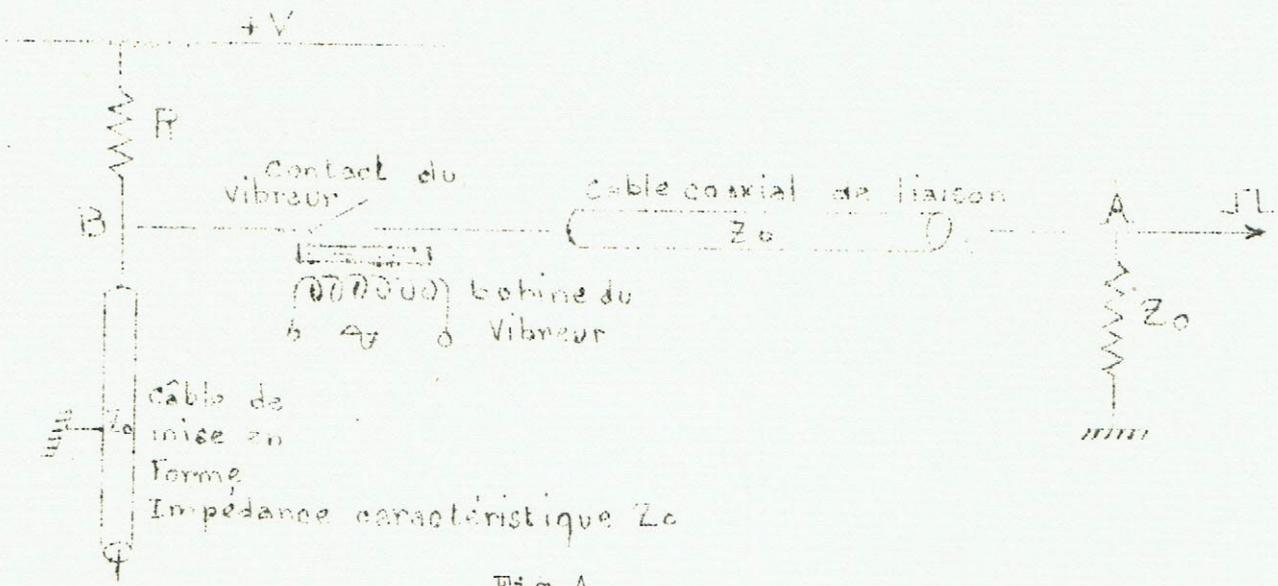 +V
R
Contact du
vibreur
Cable coaxial de liaison
B
Zo
A
bobine du
Vibreur
Zo
Câble de
mise en
Forme
Zo
Impédance caractéristique Zo
Fig A